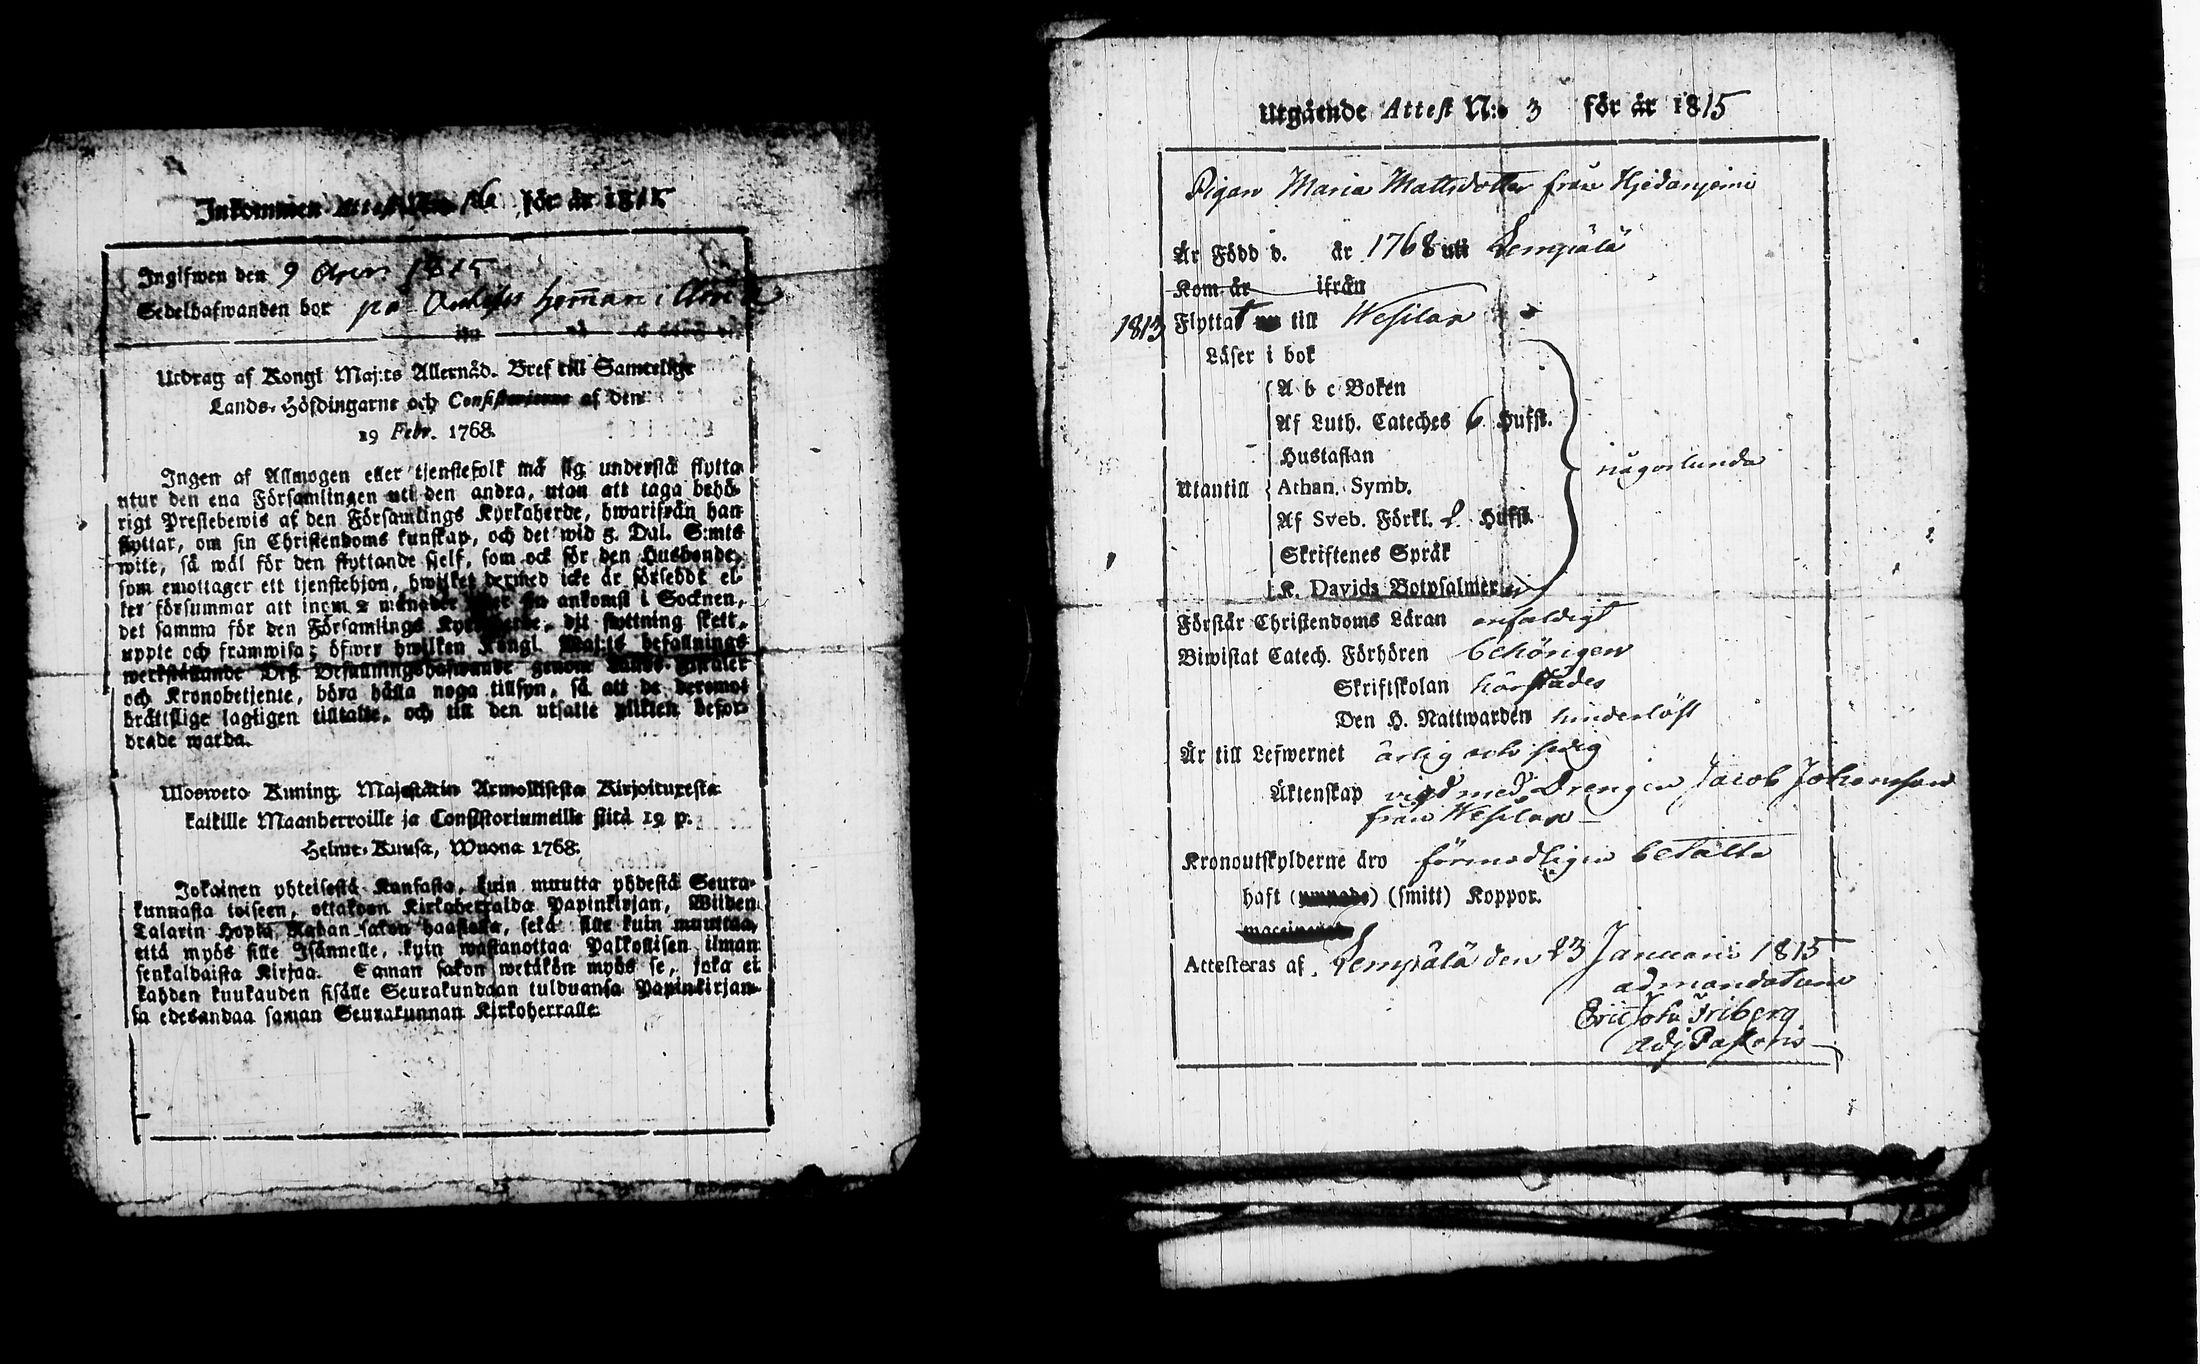 Inkommen Attest N:o 16 för år 1815
Ingifwen den 9 April 1815
Sedelhafwanden bor på heman i
Utdrag af Kongl Maj:ts Allernåd. Bref till Samtelige
Lands-Höfdingarne och Consistorierne af den
19 Febr. 1768.
Ingen af Allmogen eller tjenstefolk må sig understå flytta
utur den ena Församlingen uti den andra, utan att taga behö-
rigt Prestebewis af den Församlings Kyrkoherde, hwarifrån han
flyttar, om sin Christendoms kunskap, och det wid 5. Dal. S:mts
wite, så wäl för den flyttande sjelf, som ock för den Husbonde,
som emottager ett tjenstehjon, hwilket dermed icke är förseddt el-
ler försummar att inom 2 månader efter sin ankomst i Socknen,
det samma för den Församlings Kyrkoherde, dit flyttning skett,
uppte och framwisa; öfwer hwilken Kongl. Maj:ts befallnings
werkställande Deß Befallningshafwande genom Lands-Fiskaler
och Kronobetjente, böra hålla noga tillsyn, så att de deremot
brättslige lagligen tilltalte, och till den utsatte plikten befor-
drade warda.
Ulosweto Kuning. Majestätin Armollisesta Kirjoituxesta
kaikille Maanherroille ja Consistoriumeille siitä 19 p.
Helme-Kuusa, Wuona 1768.
Jokainen yhteisestä Kansasta, kuin muutta yhdestä Seura-
kunnasta toiseen, ottakoon Kirkoherralda Papinkirjan, Wiiden
Talarin Hopia Rahan sakon haastolla, sekä sille kuin muuttaa,
että myös sille Isännelle, kuin wastanottaa Palkollisen ilman
senkaldaista Kirjaa. Saman sakon wetäkön myös se, joka ei
kahden kuukauden sisälle Seurakundaan tulduansa Papinkirjan-
sa edesandaa saman Seurakunnan Kirkoherralle.
Utgående Attest N:o 3 för år 1815
Pigan Maria Mattsdotter från Hjedanjemi
Är Född d. år 1768 uti Lempälä
Kom år ifrån
1813 Flyttat till Wesilax
Läser i bok
A b c Boken
Af Luth. Cateches 6 Hufst.
Hustaflan
Utantill Athan. Symb.
Af Sveb. Förkl. 2 Hufst.
Skriftenes Språk
K. Davids Botpsalmer
någorlunda
Förstår Christendoms Läran enfaldigt
Biwistat Catech. Förhören behörigen
Skriftskolan härstädes
Den H. Nattwarden hinderlöst
Är till Lefwernet ärlig och sedig
Äktenskap vigd med Drengen Jacob Johansson
från Wesilax
Kronoutskylderne äro förmodligen betalte
haft (smitt) Koppor.
Attesteras af Lempälä den 23 Januarii 1815
ad mandatum
Eric Joh: Friberg
Adj Pastoris